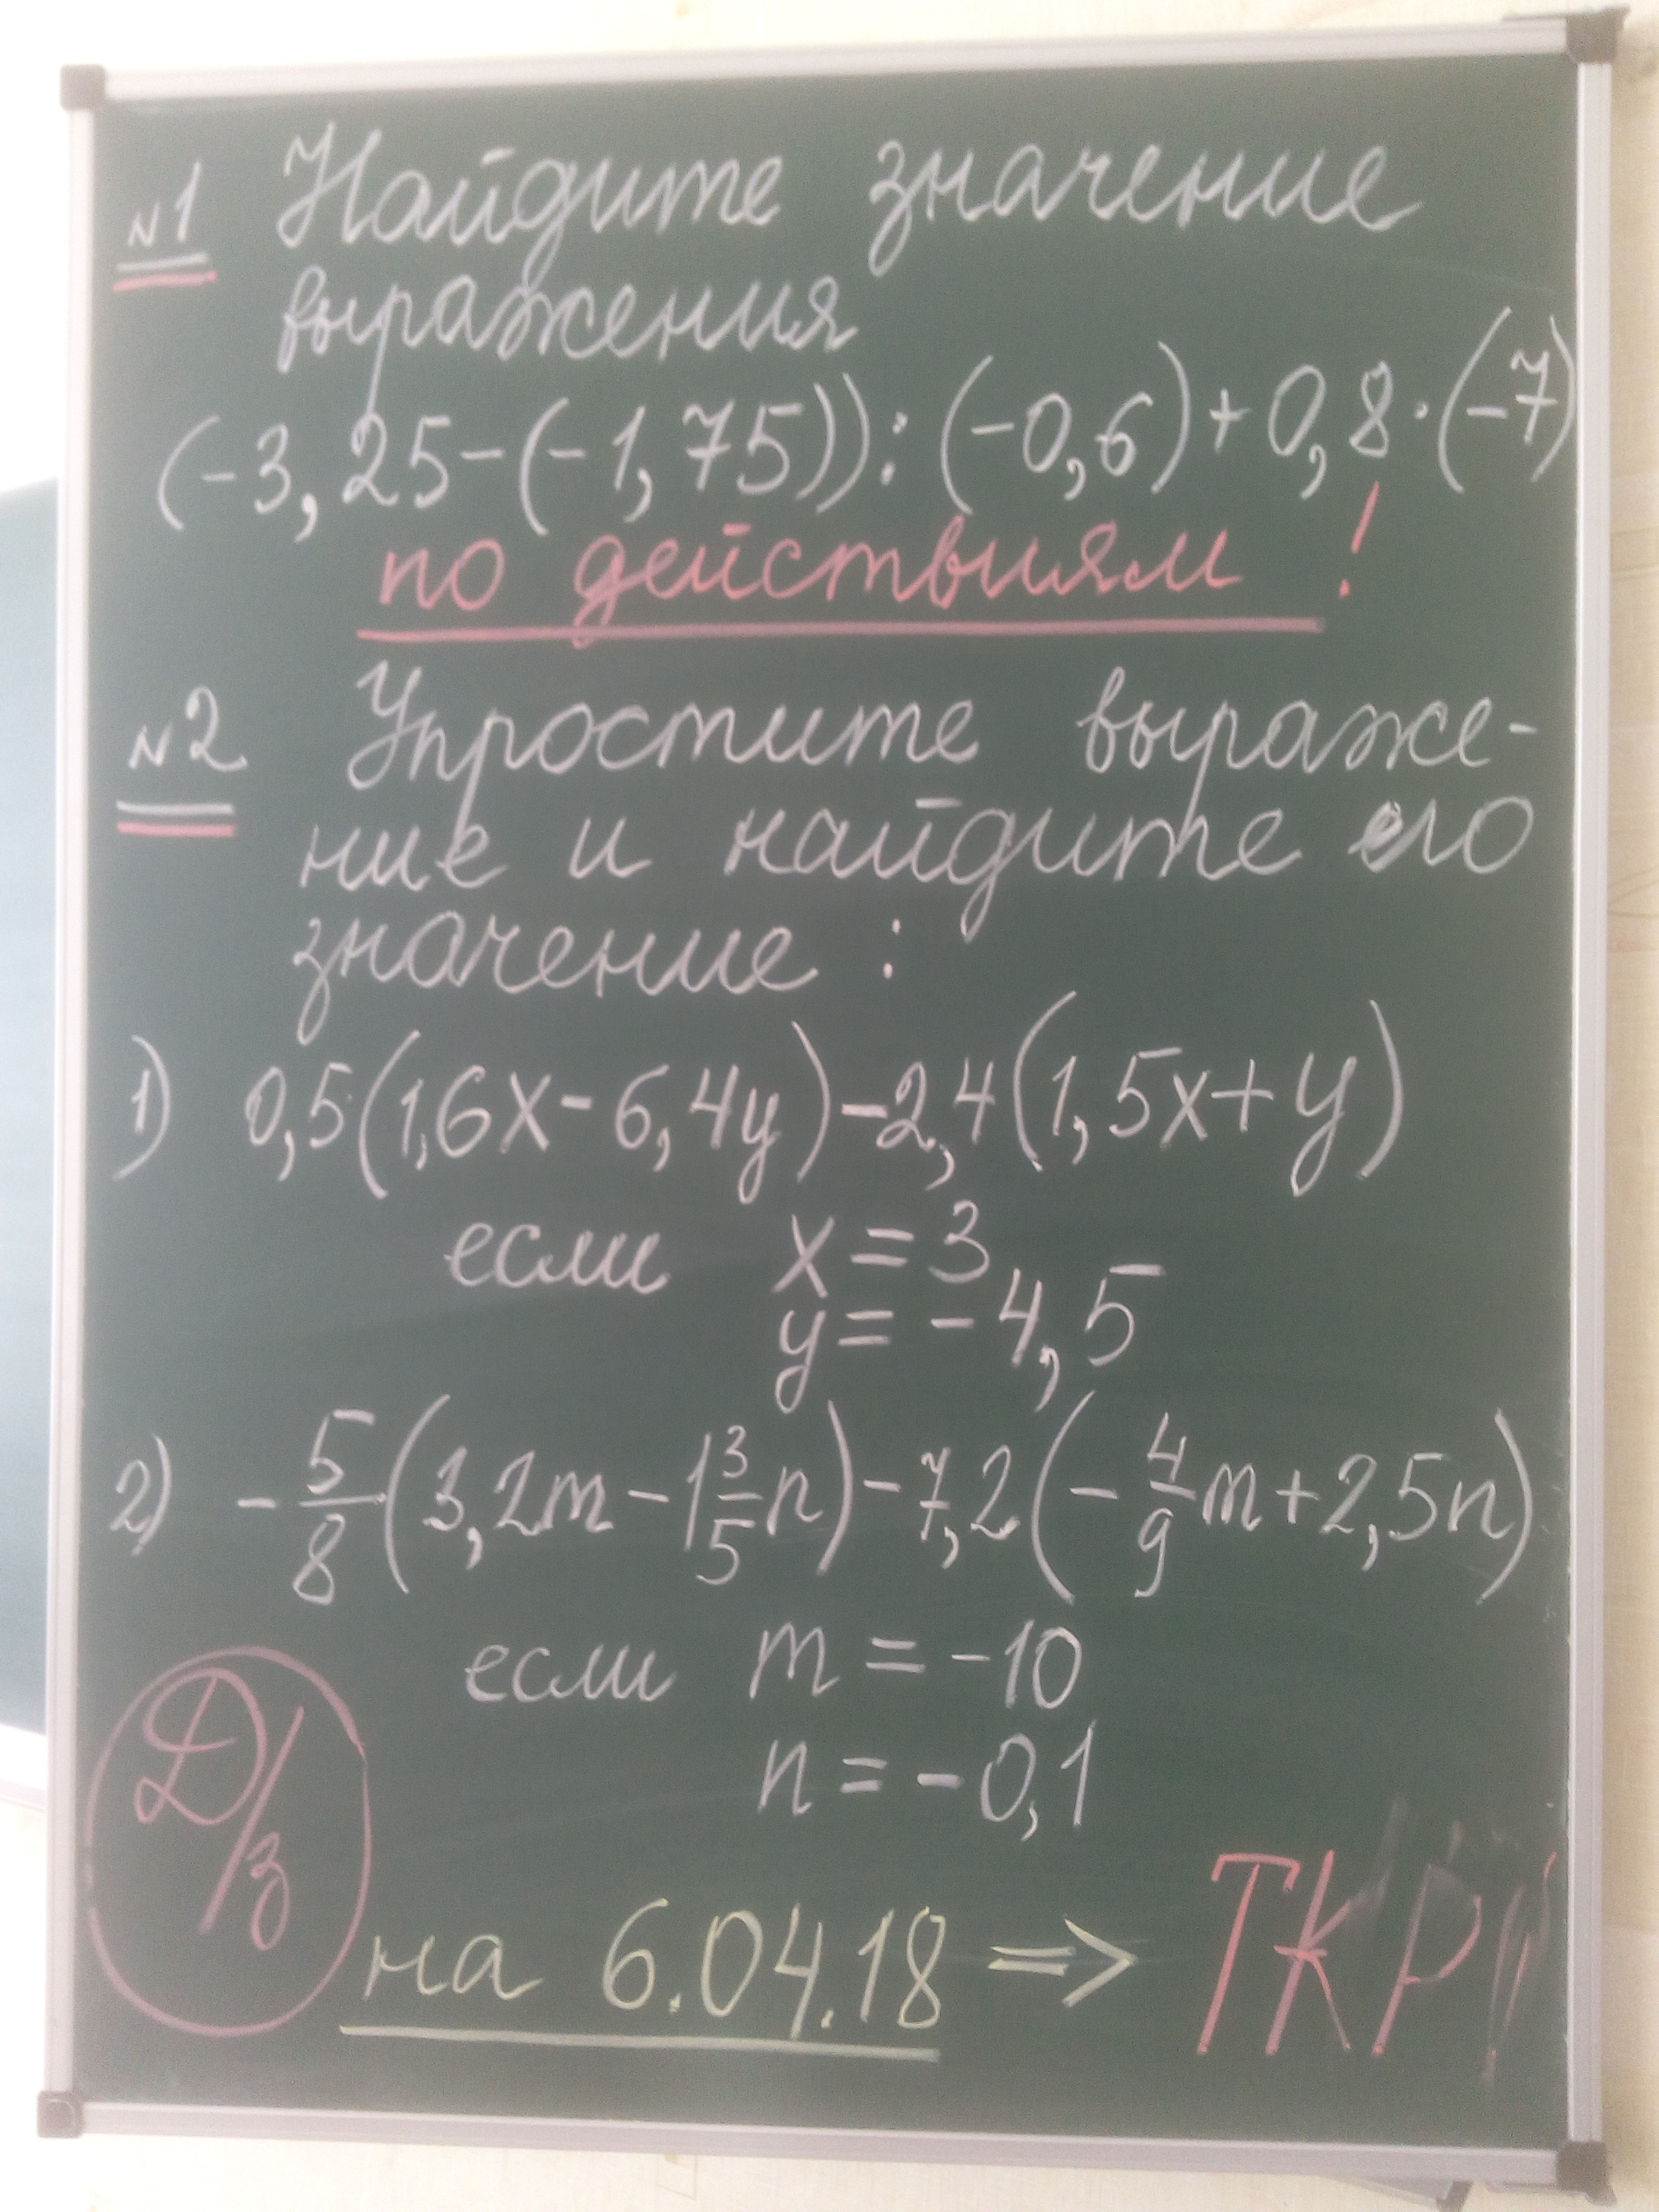 №1 Найдите значение
выражения
(-3,25-(-1,75)):(-0,6)+0,8·(-7)
по действиям!
№2 Упростите выраже-
ние и найдите его
значение:
1) 0,5(1,6x-6,4y)-2,4(1,5x+y)
если x=3
y=-4,5
2) -5/8(3,2m-1 3/5n)-7,2(-4/9m+2,5n)
если m=-10
n=-0,1
Д/з
на 6.04.18 => ТКР